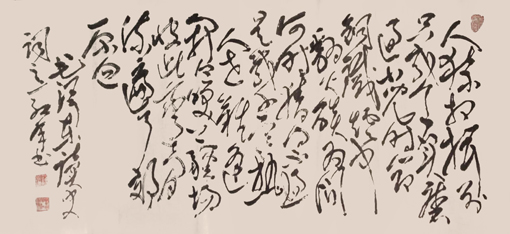 人猿相揖别
只几个石头磨
过小儿时节
铜铁炉中
翻火焰为问
何时猜得不过
几千寒热
人世难逢
开口笑上疆场
彼此弯弓月
流遍了郊
原血
毛泽东读史
词